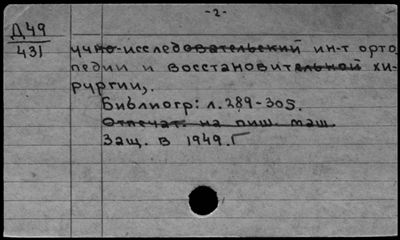 -2-
Д49
431
учно-исследовательский ин-т орто
педии и восстановительной хи-
рургии,.
Библиогр: л. 289-305.
Отпечат. на пиш. маш.
Защ. в 1949.Г